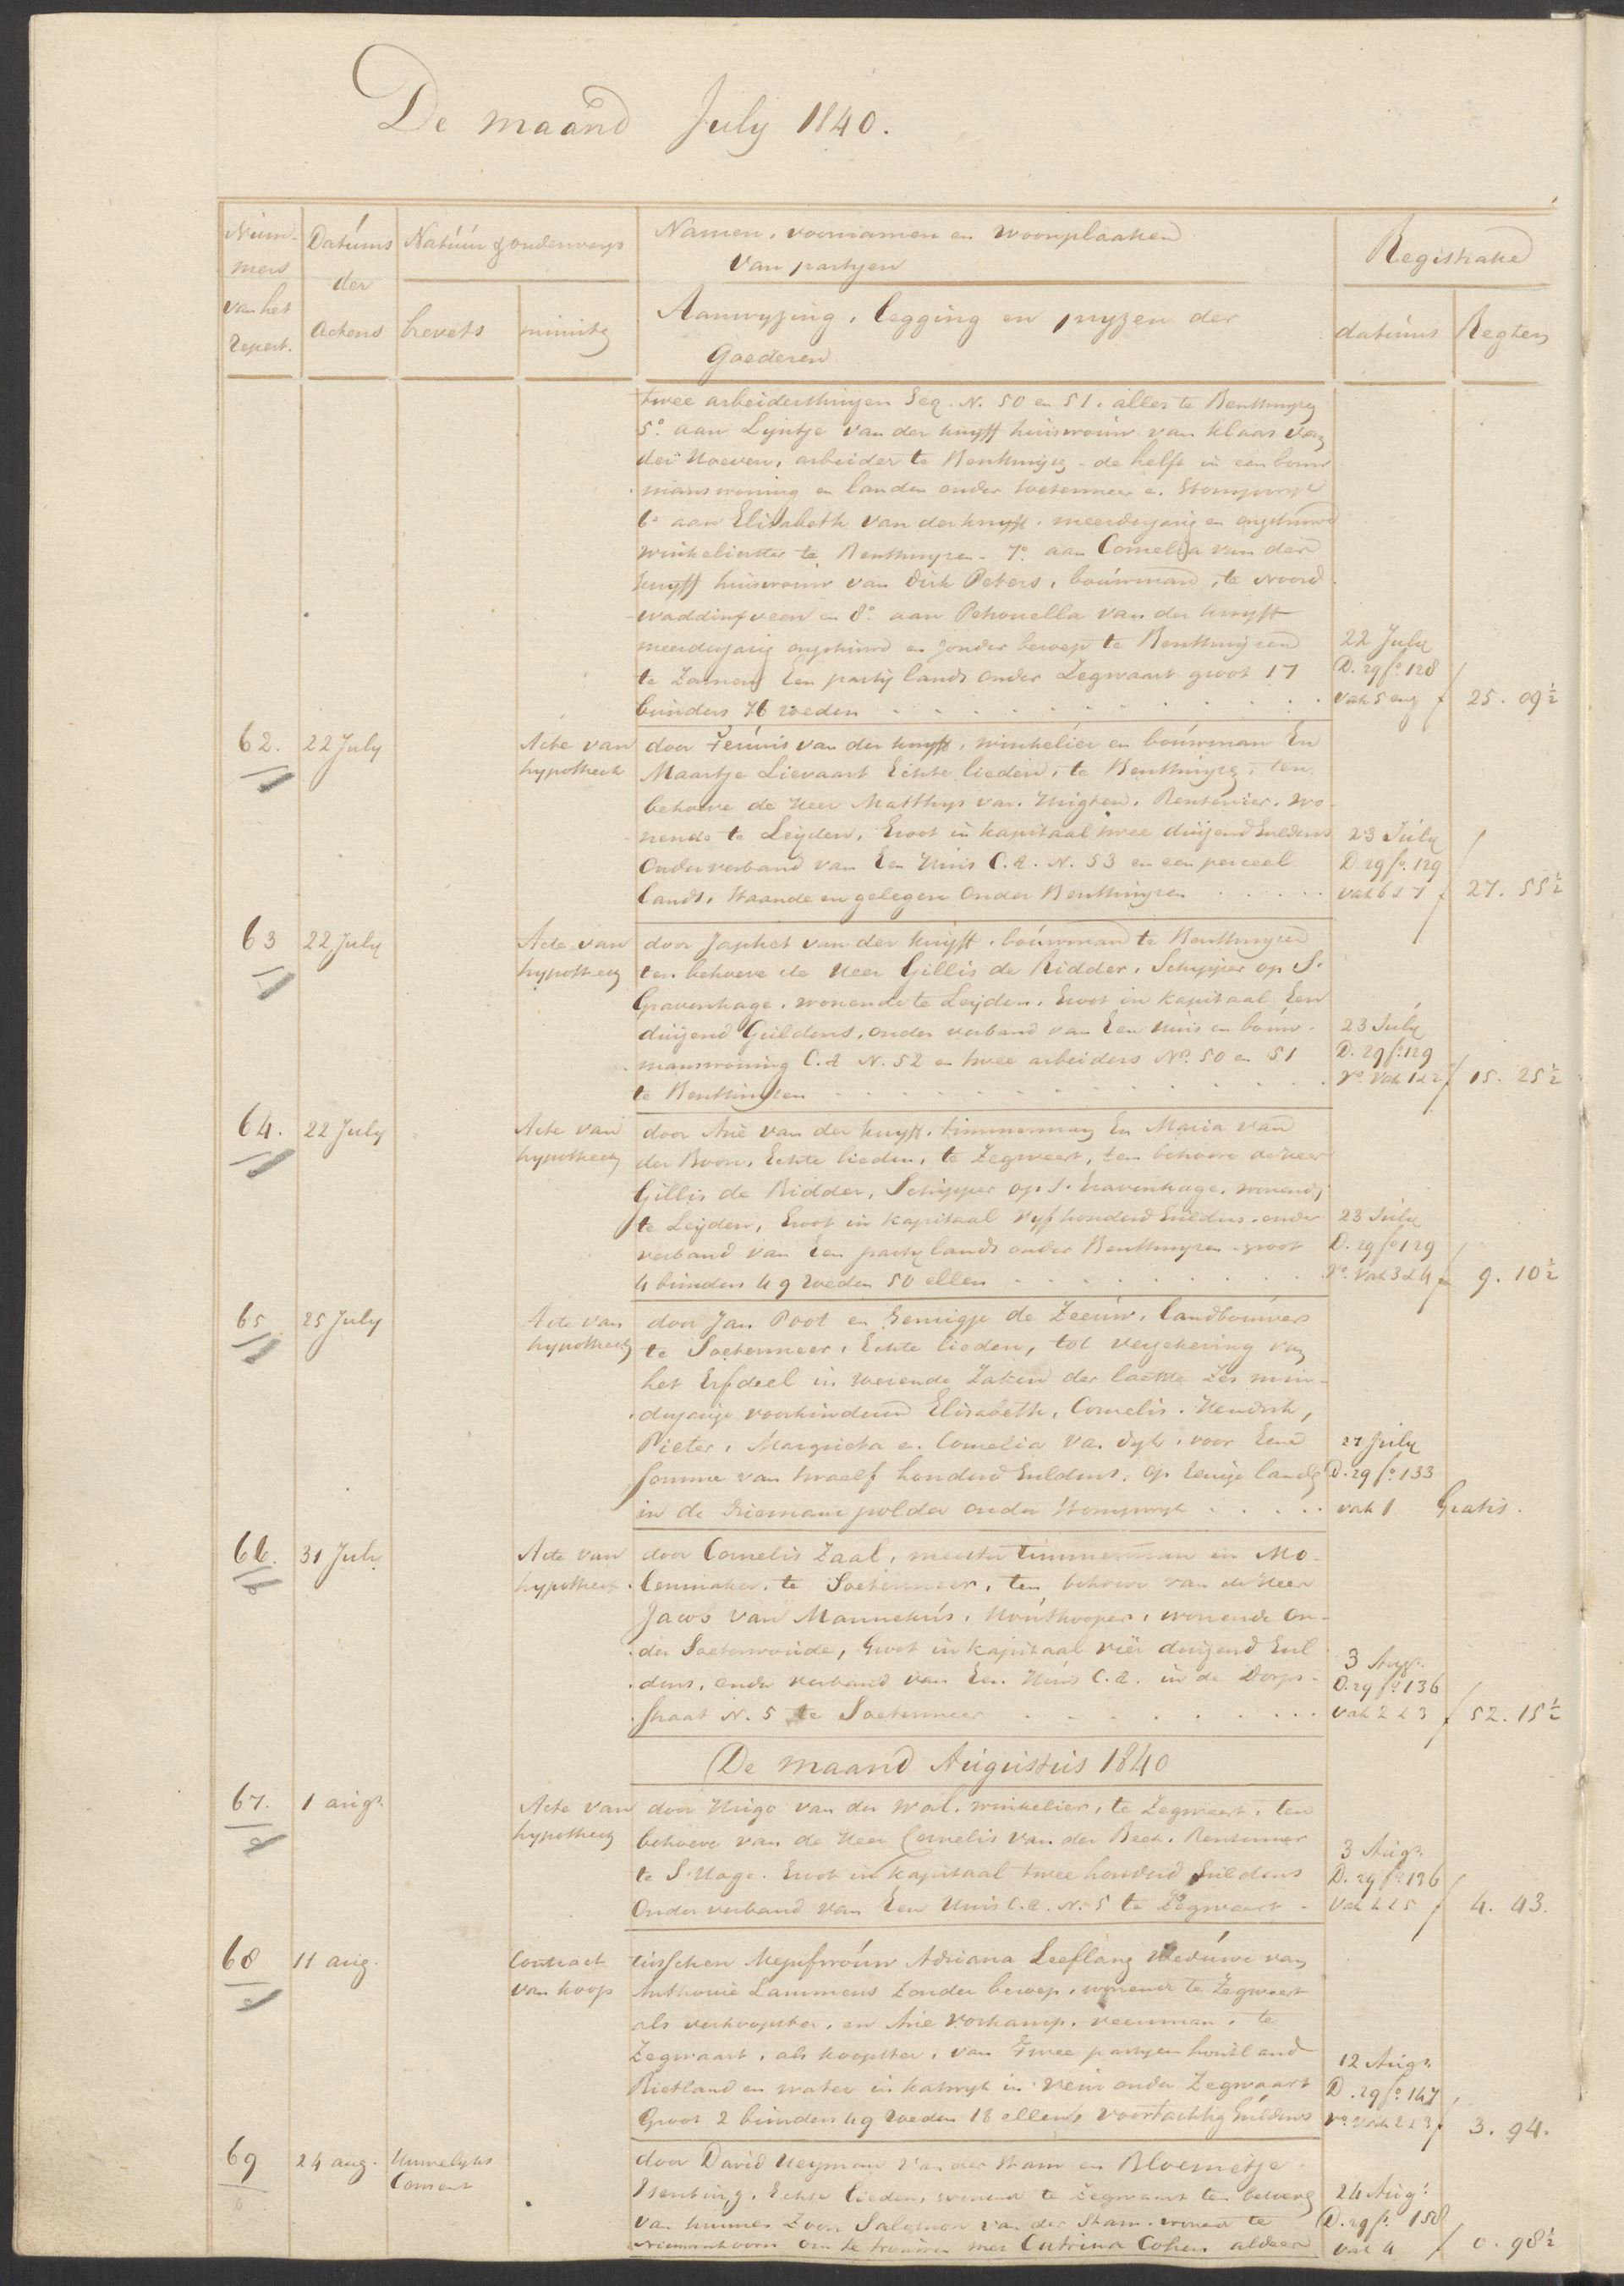 De maand July 1840.
Num-
mers
van het
Repert.
Datums
der
Actens
Natuur & onderwerps
brevets
minute
Namen, voornamen en woonplaatsen
van partyen
Aanwyzing, legging en pryzen der
Goederen
Registratie
datums
Regten
twee arbeidershuizen Seq. N. 50 en 51. alles te Benthuyzen
5o. aan Lyntje van der knyff huisvrouw van Klaas van
der Hoeven, arbeider te Benthuyzen - de helft in een bouw
manswoning en landen onder Soetermeer en Stompwyk
6o aan Elisabeth van der knyff, meerderjarig en ongehuwd
winkelierster te Benthuyzen - 7o. aan Cornelia van der
knyff huisvrouw van Dirk Peters, bouwman, te Noord
waddinxveen en 8o. aan Petronella van der knyff
meerderjarig ongehuwd en zonder beroep te Benthuyzen
te Zamen Een party lands onder Zegwaart groot 17
bunders 76 roeden
22 July
D. 29 fo. 128
vak 5 en
f 25. 09½
62. 22 July
Acte van
hypotheek
door Teunis van der knyff, winkelier en bouwman En
Maartje Lievaart Echte lieden, te Benthuyzen, ten
behoeve de Heer Matthys van Huigten, Rentenier, wo-
nende te Leijden, Groot in kapitaal twee duijzend Guldens
Onder verband van Een Huis C.a. N. 53 en een perceel
Lands, staande en gelegen Onder Benthuyzen
23 July
D. 29 fo. 129
vak 6 & 7
f 27. 55½
63 22 July
Acte van
hypotheek
door Japhet van der knyff, bouwman te Benthuyzen
ten behoeve de Heer Gillis de Ridder, Schipper op S.
Gravenhage, wonende te Leijden, Groot in kapitaal Een
duijzend Guldens, onder verband van Een Huis en bouw-
manswoning C.a N. 52 en twee arbeiders No. 50 en 51
te Benthuyzen
23 July
D. 29 fo. 129
vo. Vak 1 & 2
f 15. 25½
64. 22 July
Acte van
hypotheek
door Arie van der knyff, timmerman En Maria van
der Boon, Echte lieden, te Zegwaart, ten behoeve de Heer
Gillis de Ridder, Schipper op S. Gravenhage, wonende
te Leijden, Groot in kapitaal Vyfhonderd Guldens, onder
verband van Een party lands onder Benthuyzen - groot
4 bunders 49 Roeden 50 ellen
23 July
D. 29 fo 129
vo. Vak 3 & 4
f 9. 10½
65. 25 July
Acte van
hypotheek
door Jan Poot en Gemigje de Zeeuw, landbouwers
te Soetermeer, Echte lieden, tot verzekering van
het Erfdeel in roerende Zaken der laatste Zes min-
derjarige voorkinderen Elisabeth, Cornelis, Hendrik,
Pieter, Margrieta en Cornelia van Dyk, voor Eene
Somme van twaalf honderd Guldens, op Eenige landen
in de polder onder Stompwyk
27 July
D. 29 fo. 133
vak 1
Gratis.
66. 31 July
Acte van
hypotheek
door Cornelis Zaal, meester timmerman en Mo-
lenmaker, te Soetermeer, ten behoeve van de Heer
Jacob van Mannekus, Houtkooper, wonende on-
der Soeterwoude, Groot in kapitaal vier duizend Gul-
dens, onder verband van Een Huis C.a. in de Dorps-
straat N. 5 te Soetermeer
3 Augs.
D. 29 fo 136
Vak 2 & 3
f 52. 15½
De maand Augustus 1840
67. 1 augs.
Acte van
hypotheek
door Hugo van der Wal, winkelier, te Zegwaart, ten
behoeve van de Heer Cornelis van der Beek, Rentenier
te S'Hage. Groot in kapitaal twee honderd Guldens
Onder verband van Een Huis C.a. N. 5 te Zegwaart
3 Augs.
D. 29 fo. 136
Vak 4 & 5
f 4. 43.
68 11 aug.
Contract
van koop
tusschen Mejufvrouw Adriana Leeflang Weduwe van
Anthonie Lammens Zonder beroep, wonende te Zegwaart
als verkoopster, en Arie Voskamp, veenman, te
Zegwaart, als koopster, van Twee partyen
Rietland en water in Katwyk in onder Zegwaart
Groot 2 bunders 49 Roeden 18 ellen, voor tachtig Guldens
12 Augs.
D. 29 fo. 147
vo. Vak 2 & 3
f 3. 94.
69 24 aug.
Huwelyks
Consent
door David Heyman van der Stam en Bloemetje
Isenting, Echte lieden, wonende te Zegwaart ten behoeve
van hunnen Zoon Salomon van der Stam, wonende te
om te trouwen met Catrina Cohen aldaar
24 Augs.
D. 29 fo. 158
vak 4
f 0. 98½